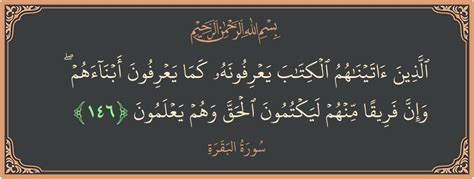 بِسْمِ اللَّهِ الرَّحْمَٰنِ الرَّحِيمِ
الَّذِينَ ءَاتَيْنَاهُمُ الْكِتَابَ يَعْرِفُونَهُۥ كَمَا يَعْرِفُونَ أَبْنَاءَهُمْ ۖ
وَإِنَّ فَرِيقًا مِّنْهُمْ لَيَكْتُمُونَ الْحَقَّ وَهُمْ يَعْلَمُونَ ﴿١٤٦﴾
سُورَةُ البَقَرَةِ